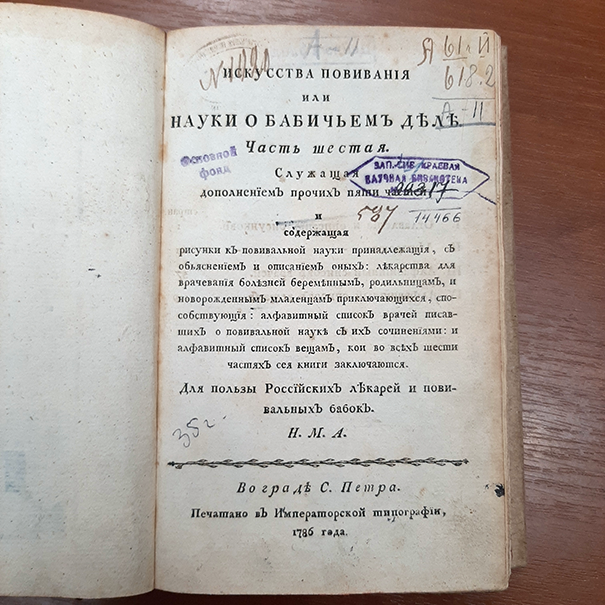 А-11
Я 61 й
618.2
А-11
N 1180
ИСКУССТВА ПОВИВАНІЯ
ИЛИ
НАУКИ О БАБИЧЬЕМЪ ДѢЛѢ.
Часть шестая.
Основной
фонд
Служащая
ЗАП.-СИБ. КРАЕВАЯ
НАУЧНАЯ БИБЛИОТЕКА
дополненіемъ прочихъ пяти частей
и
587
14466
содержащая
рисунки къ повивальной науки принадлежащія, съ
обьясненіемъ и описаніемъ оныхъ: лѣкарства для
врачеванія болѣзней беременнымъ, родильницамъ, и
новорожденнымъ младенцамъ приключающихся, спо-
собствующія: алфавитный списокъ врачей писав-
шихъ о повивальной наукѣ съ ихъ сочиненіями: и
алфавитный списокъ вещамъ, кои во всѣхъ шести
частяхъ сея книги заключаются.
Для пользы Россійскихъ лѣкарей и пови-
вальныхъ бабокъ.
35 г.
Н. М. А.
Во градѣ С. Петра.
Печатано въ Императорской типографіи,
1786 года.